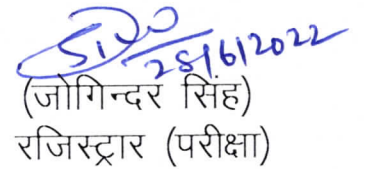 28/6/2022
(जोगिन्दर सिंह)
रजिस्ट्रार (परीक्षा)